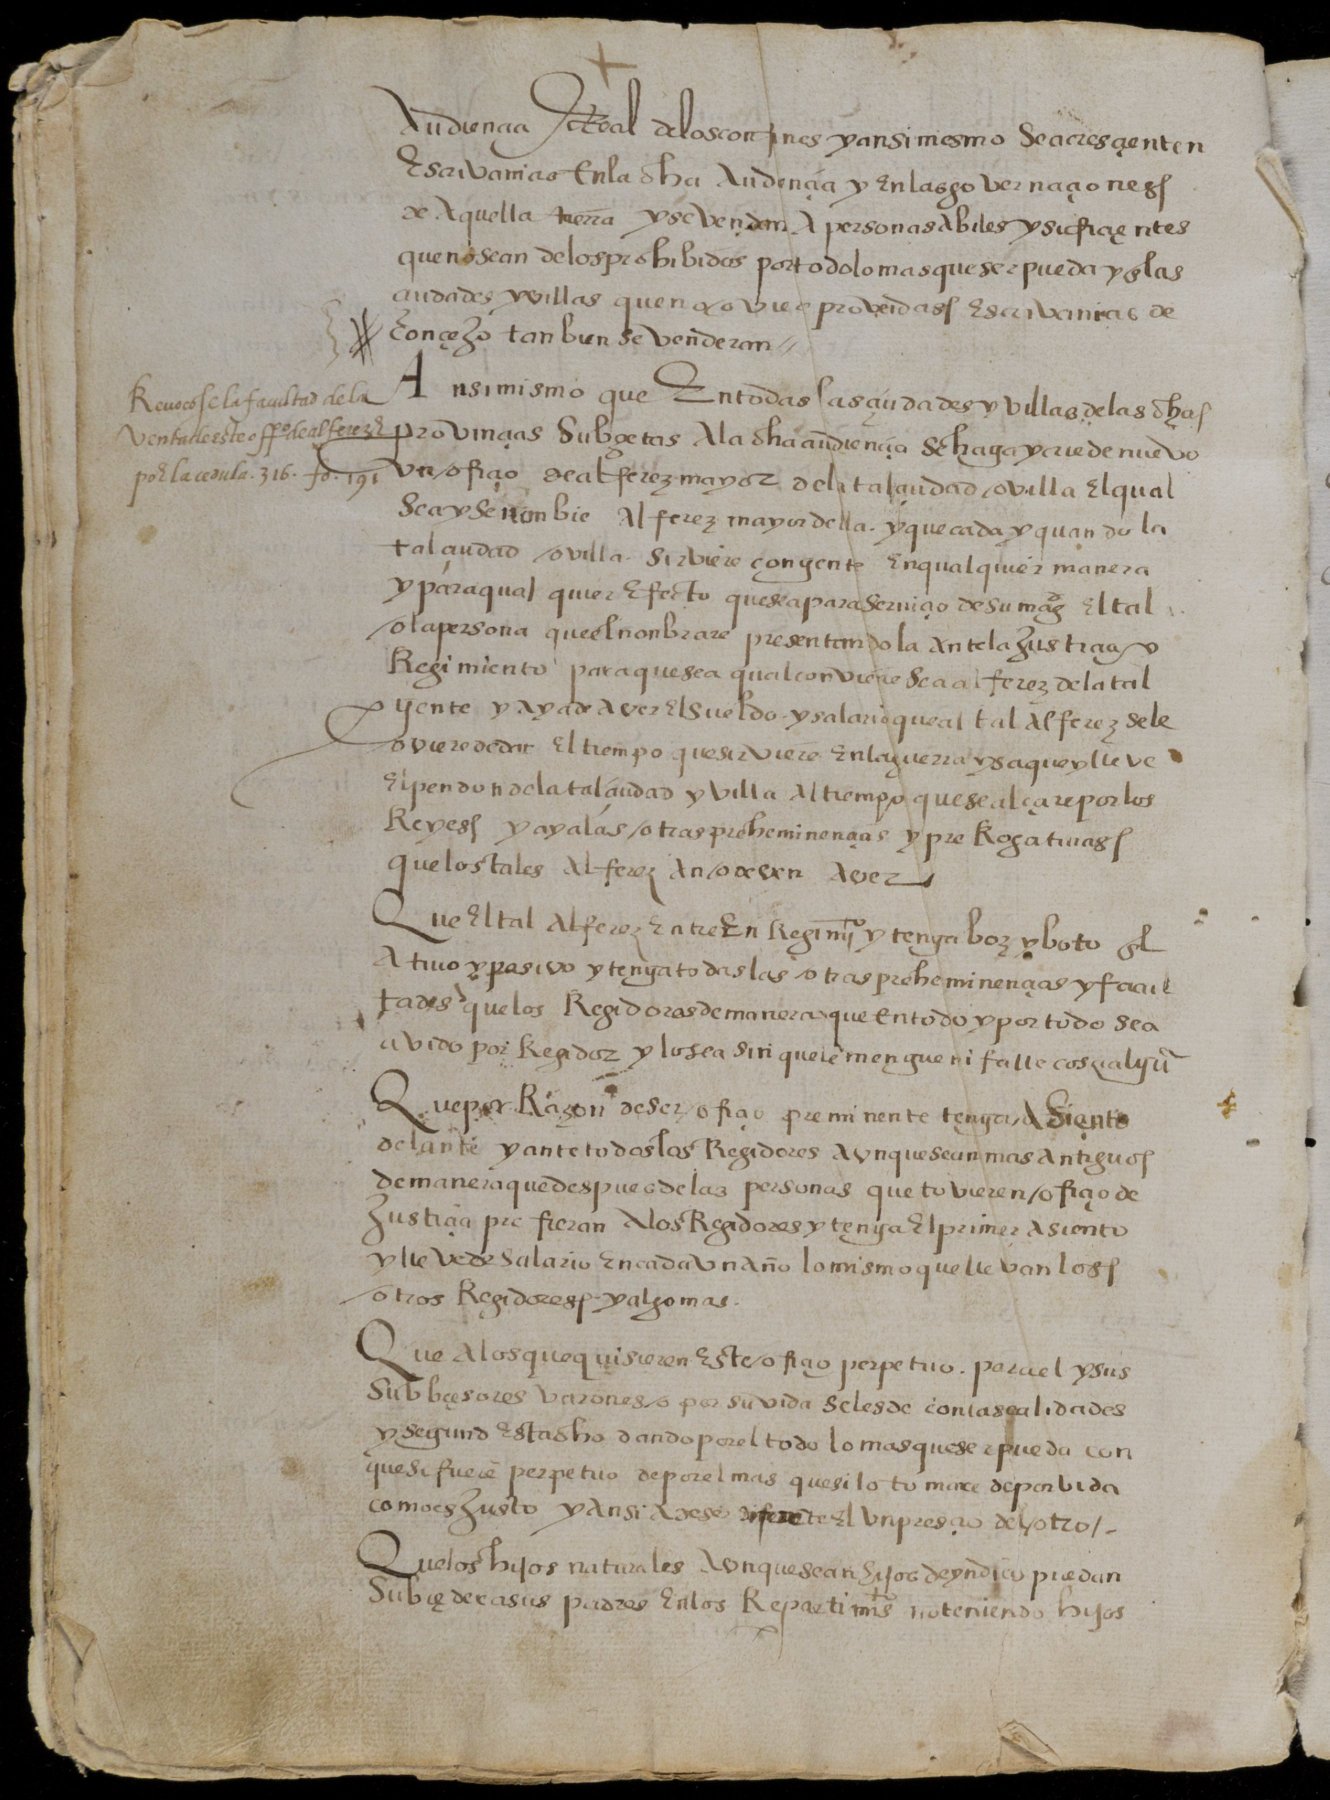 Audiençia Real delos confines y ansi mesmo se acresçienten
Escrivanias En la dha Audençia y En las governaçiones
de Aquella tierra y se vendan A personas Abiles y sufiçientes
que no sean delos prohibidos por todo lo mas que ser pueda y a las
çiudades y villas que no oviere proveidas Escrivanias de
Conçejo tanbien se venderan
Ansimismo que En todas las çiudades y villas delas dhas
Revocose la facultad de la
venta deste offº de alferez
por la cedula. 316. fo. 191
provinçias Subjetas A la dha audiençia se haga y crie de nuevo
Un ofiçio de alferez mayor dela tal çiudad o villa El qual
Sea y se nonbre Alferez mayor della. y que cada y quando la
tal çiudad o villa. sirviere con gente En qualquier manera
y para qual quier Efecto que sea para serviçio de su magd El tal
o la persona que el nonbrare presentandola Ante la Justiçia y
Regimiento para que sea qual conviene Sea alferez dela tal
gente y Aya de Aver El sueldo. y salario que al tal Alferez se le
oviere de dar El tiempo que sirviere En la guerra y saque y lleve
El pendon dela tal çiudad y villa Al tiempo que se alçare por los
Reyes y aya las otras preheminençias y prerrogativas
que los tales Alferez An o deven Aver
Que El tal Alferez Entre En Regimiº y tenga boz y boto
Ativo y pasivo y tenga todas las otras preheminençias y facul
tades que los Regidores de manera que En todo y por todo sea
avido por Regidor y lo sea sin que le mengue ni falte cosa algu
Que por Razon de ser ofiçio preminente tenga Asiento
delante y ante todos los Regidores Aunque sean mas Antiguos
de manera que despues delas personas que tovieren ofiçio de
Justiçia prefieran A los Regidores y tenga El primer Asiento
y lleve de Salario En cada Un Año lo mismo que llevan los
otros Regidores y algo mas.
Que A los que quisieren Este ofiçio perpetuo. para el y sus
Subçesores varones o por su vida se les de con las calidades
y segund Esta dho dando por el todo lo mas que ser pueda con
que si fuere perpetuo de por el mas que si lo tomare de por vida
como es Justo y Ansi A de ser diferente El Un presçio del otro
Que los hijos naturales Aunque sean hijos de yndia puedan
Subçeder a sus padres En los Repartimos no teniendo hijos